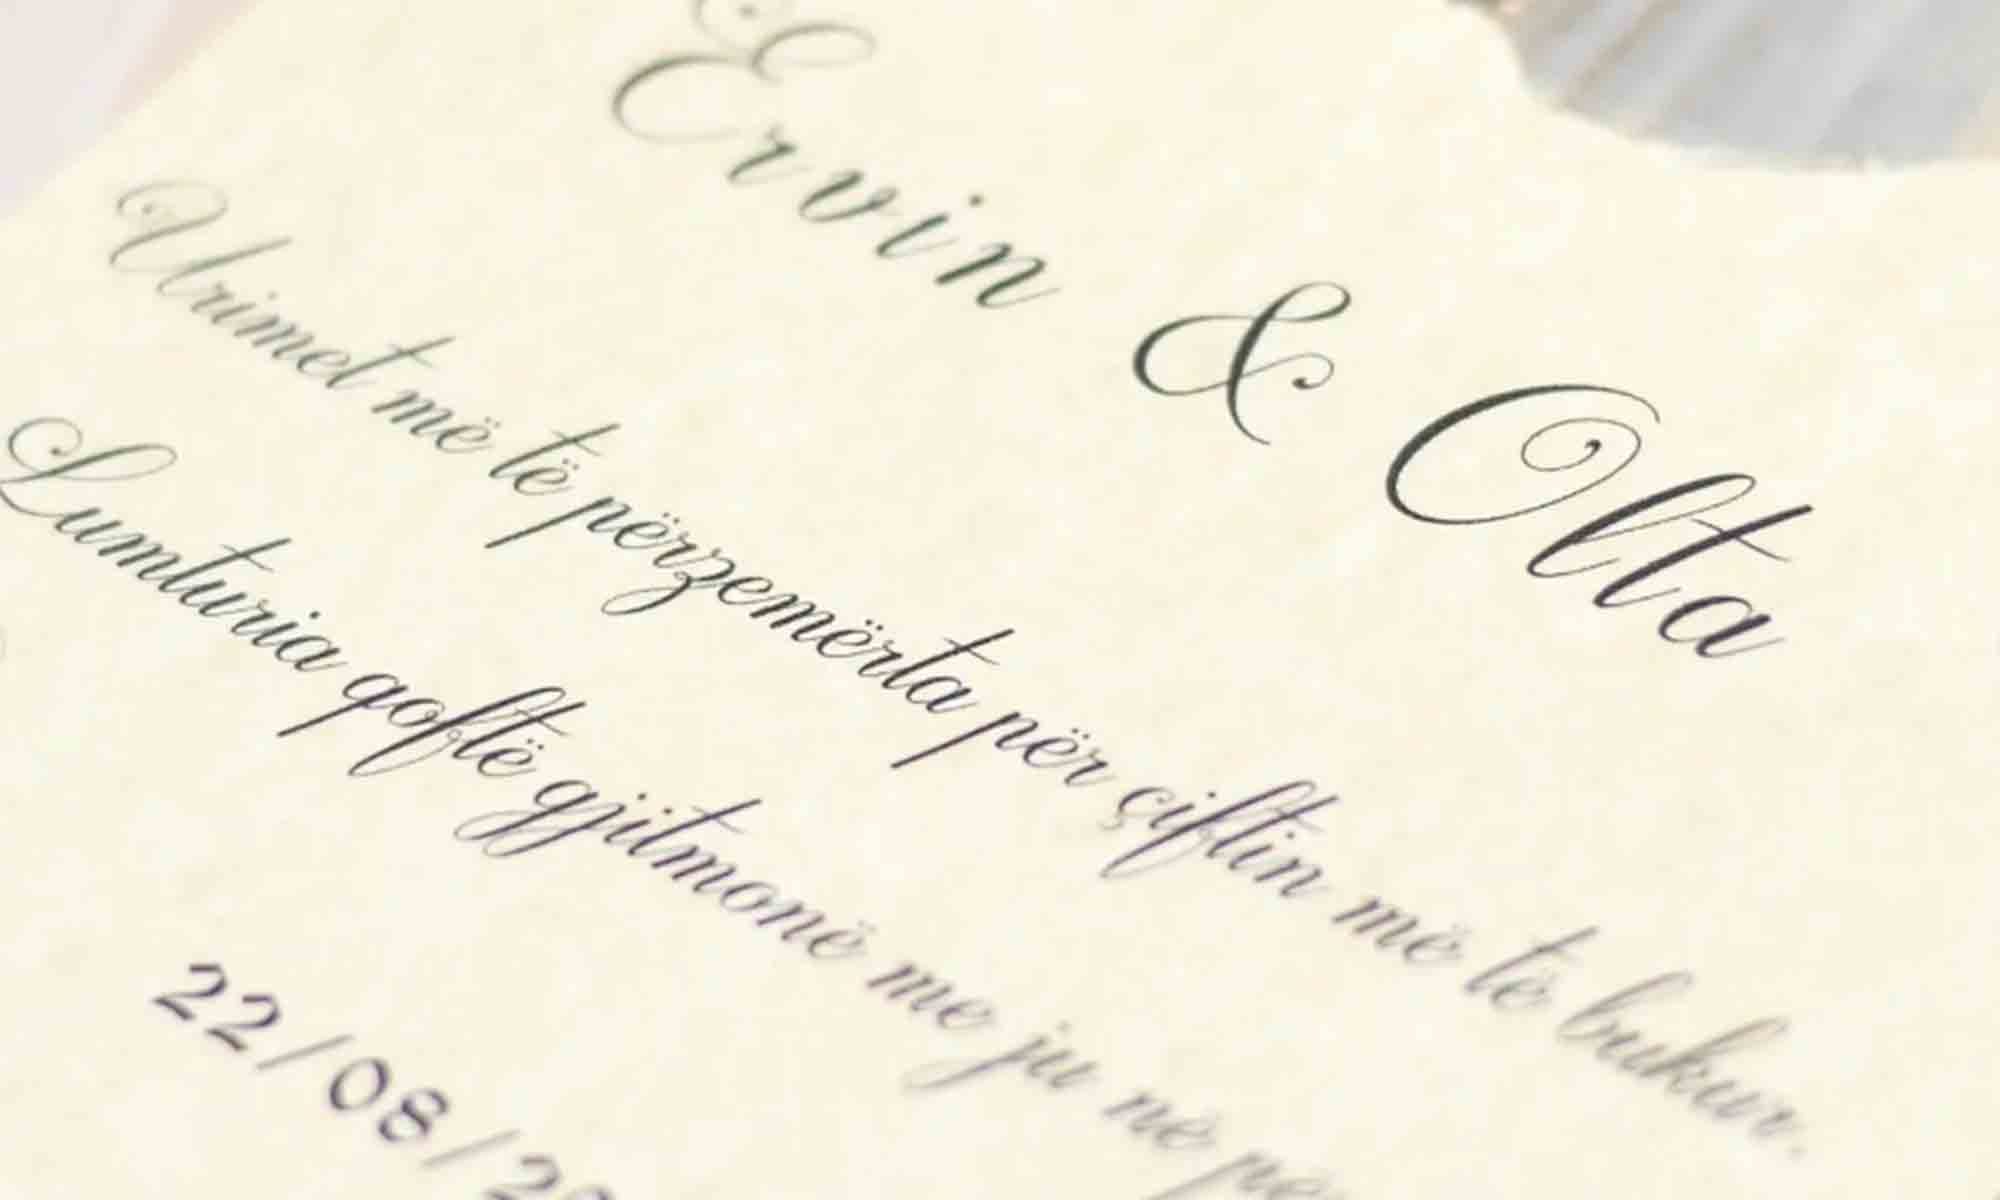 Ervin & Olta
Urimet më të përzemërta për çiftin më të bukur.
Lumturia qoftë gjitmonë me ju në
22/08/